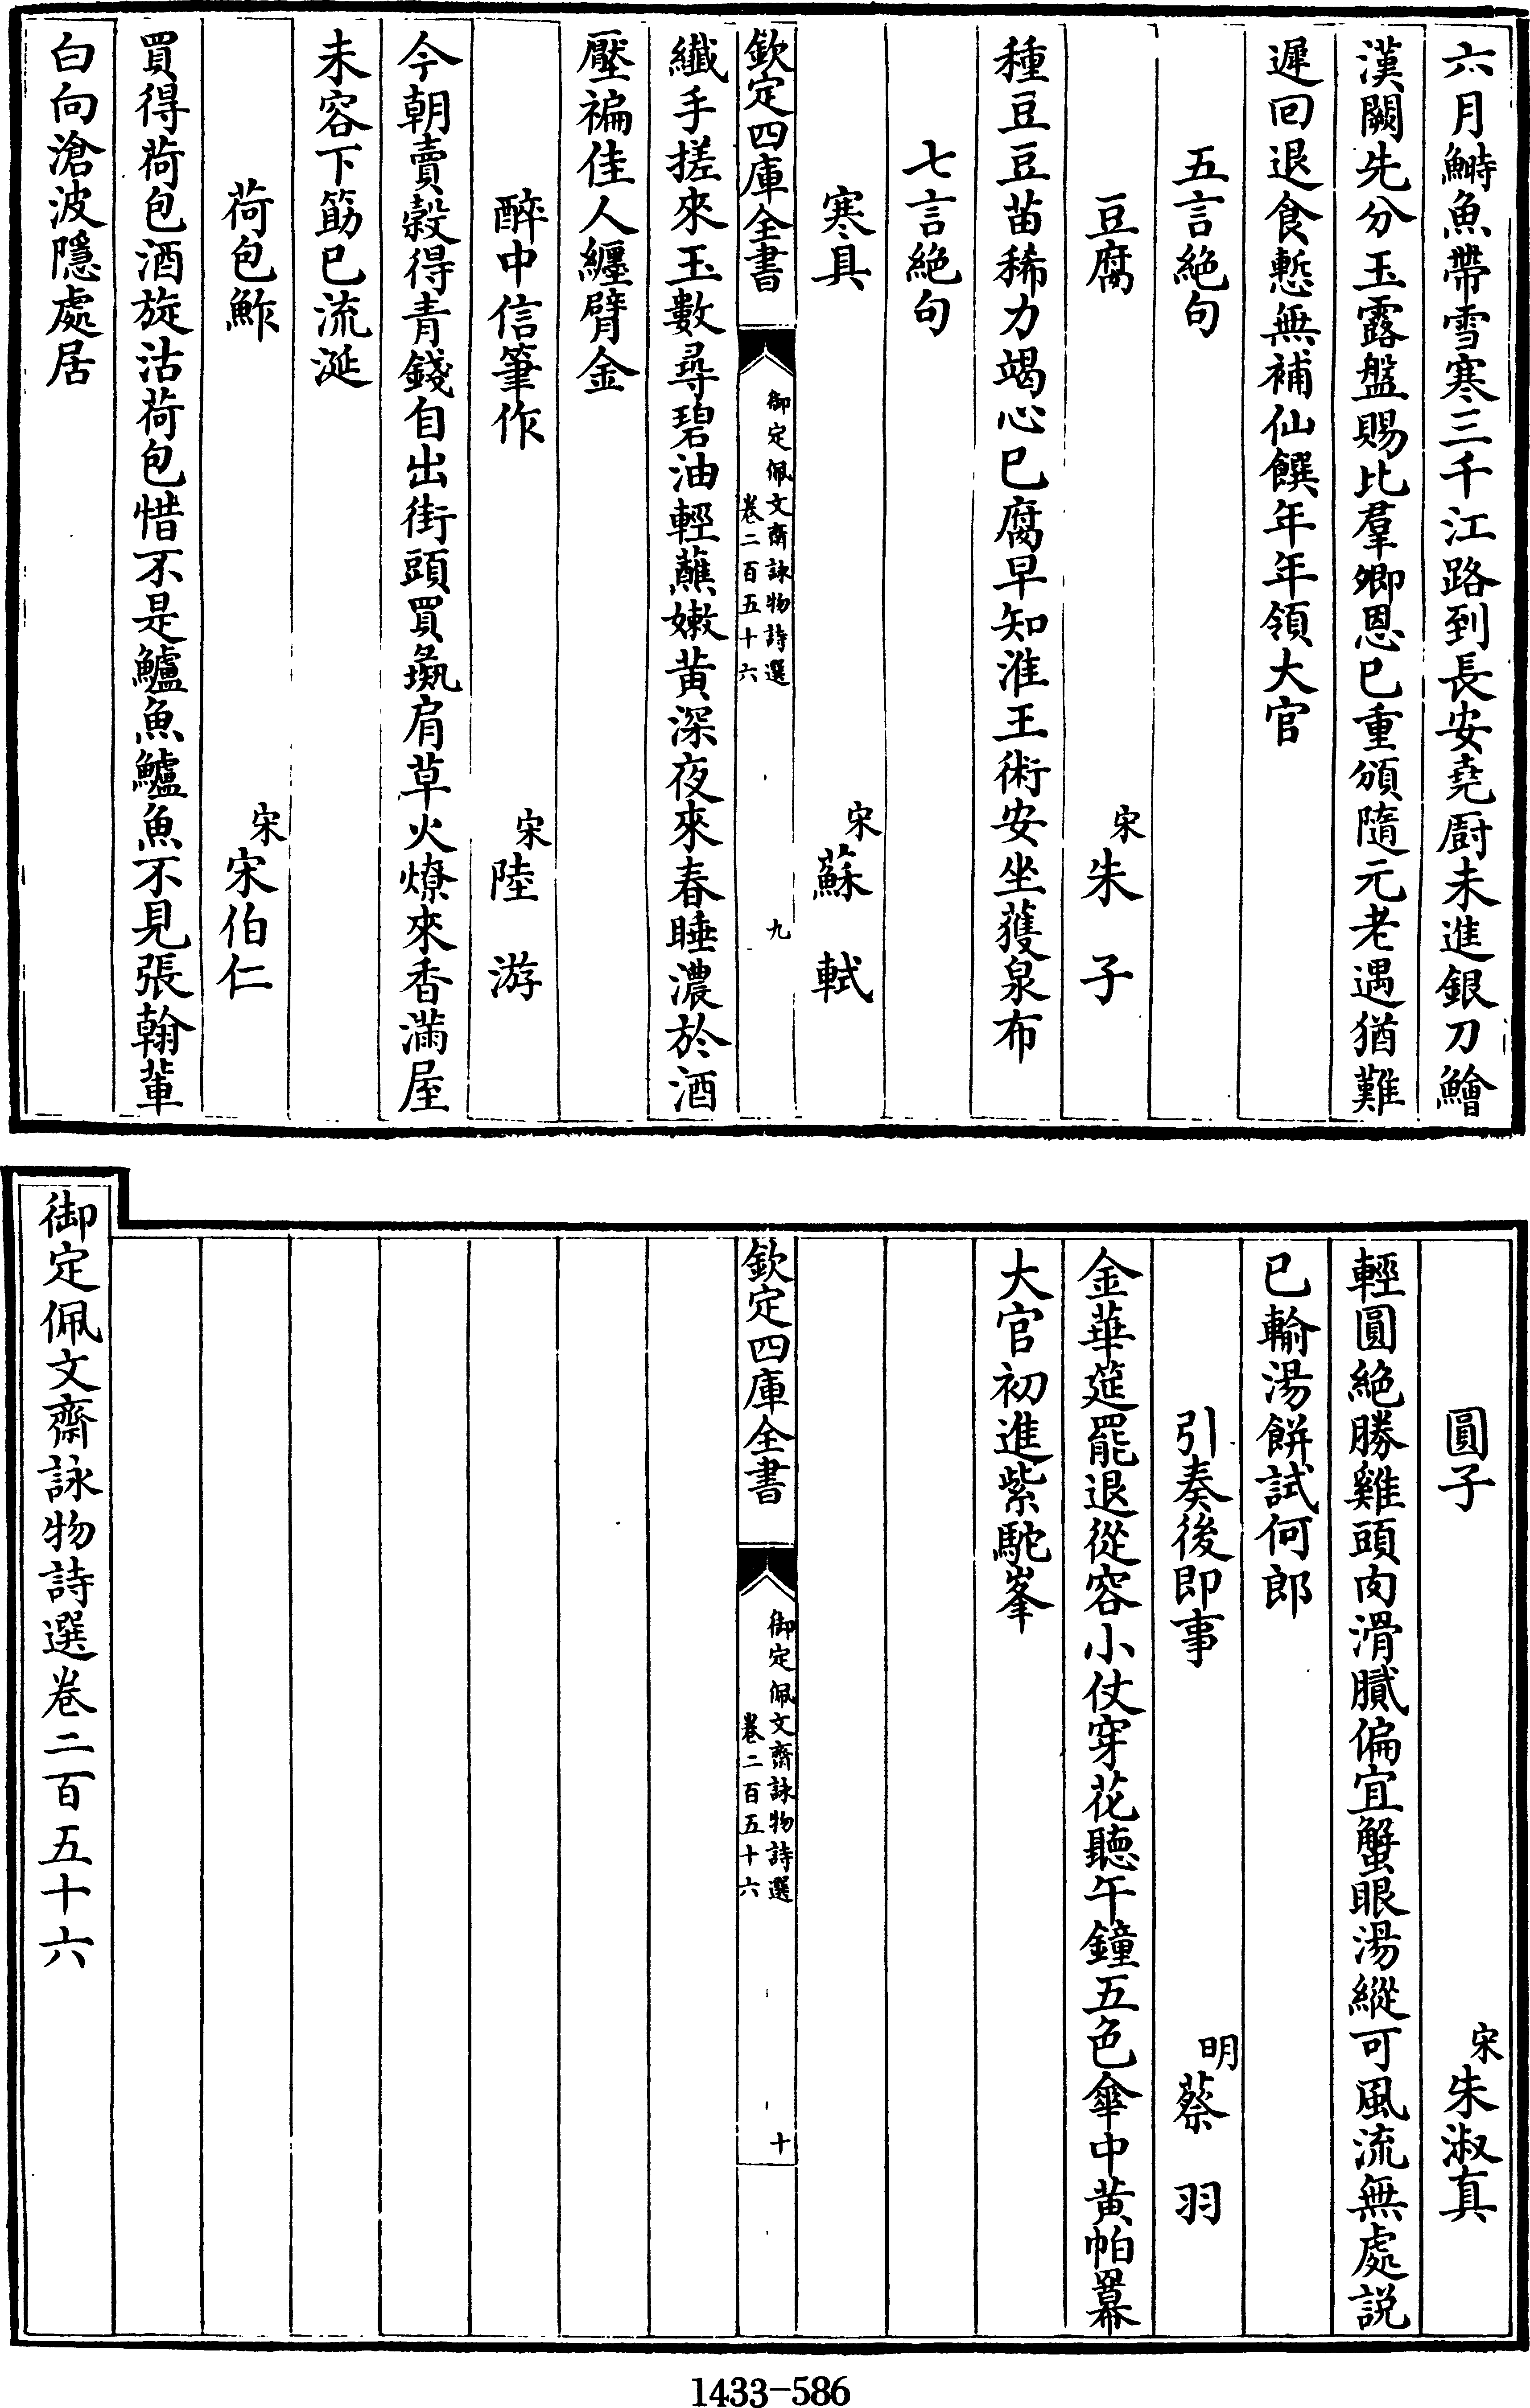 六月鰣魚帶雪寒三千江路到長安堯厨未進銀刀鱠
漢闕先分玉露盤賜比羣卿恩已重頒隨元老遇猶難
遲回退食慙無補仙饌年年領大官
五言絕句
豆腐 宋朱子
種豆豆苗稀力竭心已腐早知淮王術安坐獲泉布
七言絕句
寒具 宋蘇軾
欽定四庫全書 御定佩文齋詠物詩選 卷二百五十六 九
纖手搓來玉數尋碧油輕蘸嫩黃深夜來春睡濃於酒
壓褊佳人纏臂金
醉中信筆作 宋陸游
今朝賣榖得青錢自出街頭買彘肩草火燎來香滿屋
未容下筯已流涎
荷包鮓 宋宋伯仁
買得荷包酒旋沽荷包惜不是鱸魚鱸魚不見張翰輩
白向滄波隱處居
圓子 宋朱淑真
輕圓絕勝雞頭肉滑膩偏宜蟹眼湯縱可風流無處説
已輸湯餅試何郎
引奏後即事 明蔡羽
金華筵罷退從容小仗穿花聽午鐘五色傘中黃帕羃
大官初進紫駝峯
欽定四庫全書 御定佩文齋詠物詩選 卷二百五十六 十
御定佩文齋詠物詩選卷二百五十六
1433-586